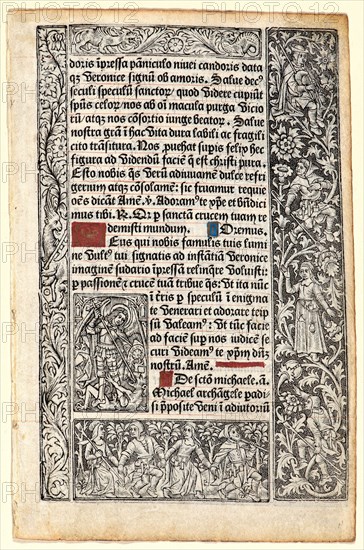 doris ip̄ressa pāniculo niuei candoris data
qȝ Veronice signū ob amoris. Salue dec⁹
seculi speculū sanctoꝝ/ quod Videre cupiūt
sp̄us celoꝝ/ nos ab oī macula purga Vicio
rū/ atqȝ nos cōsortio iunge beatoꝝ. Salue
nostra gr̄a ī hac Vita dura labili ac fragili
cito trāsitura. Nos ꝓuehat supīs felix hec
figura ad Videndū faciē q̄ est christi pura.
Esto nobis q̄s Verū adiuuamē dulce refri
geriū atqȝ cōsolamē: sic fruamur requie
oēs dicāt Amē. v̄. Adoram⁹ te xp̄e et bn̄dici
mus tibi. R̄. Qꝛ p̄ sanctā crucem tuam re
demisti mundum. Oremus.
Eus qui nobis famulis tuis lumi
ne Vult⁹ tui signatis ad instātiā Veronice
imaginē sudario īp̄ressā relinq̄re Voluisti:
p̄ passionē ⁊ crucē tuā tribue q̄s: Vt ita nūc
ī tr̄is p̄ speculū ī enigmate
Venerari et adorare te ip̄
sū Valeam⁹: Vt tūc facie
ad faciē sup nos iudicē se
curi Videam⁹ te xp̄m dn̄m
nostrū. Amē.
De sctō michaele. ā.
Michael archāgele padi
si p̄posite Veni ī adiutoriū